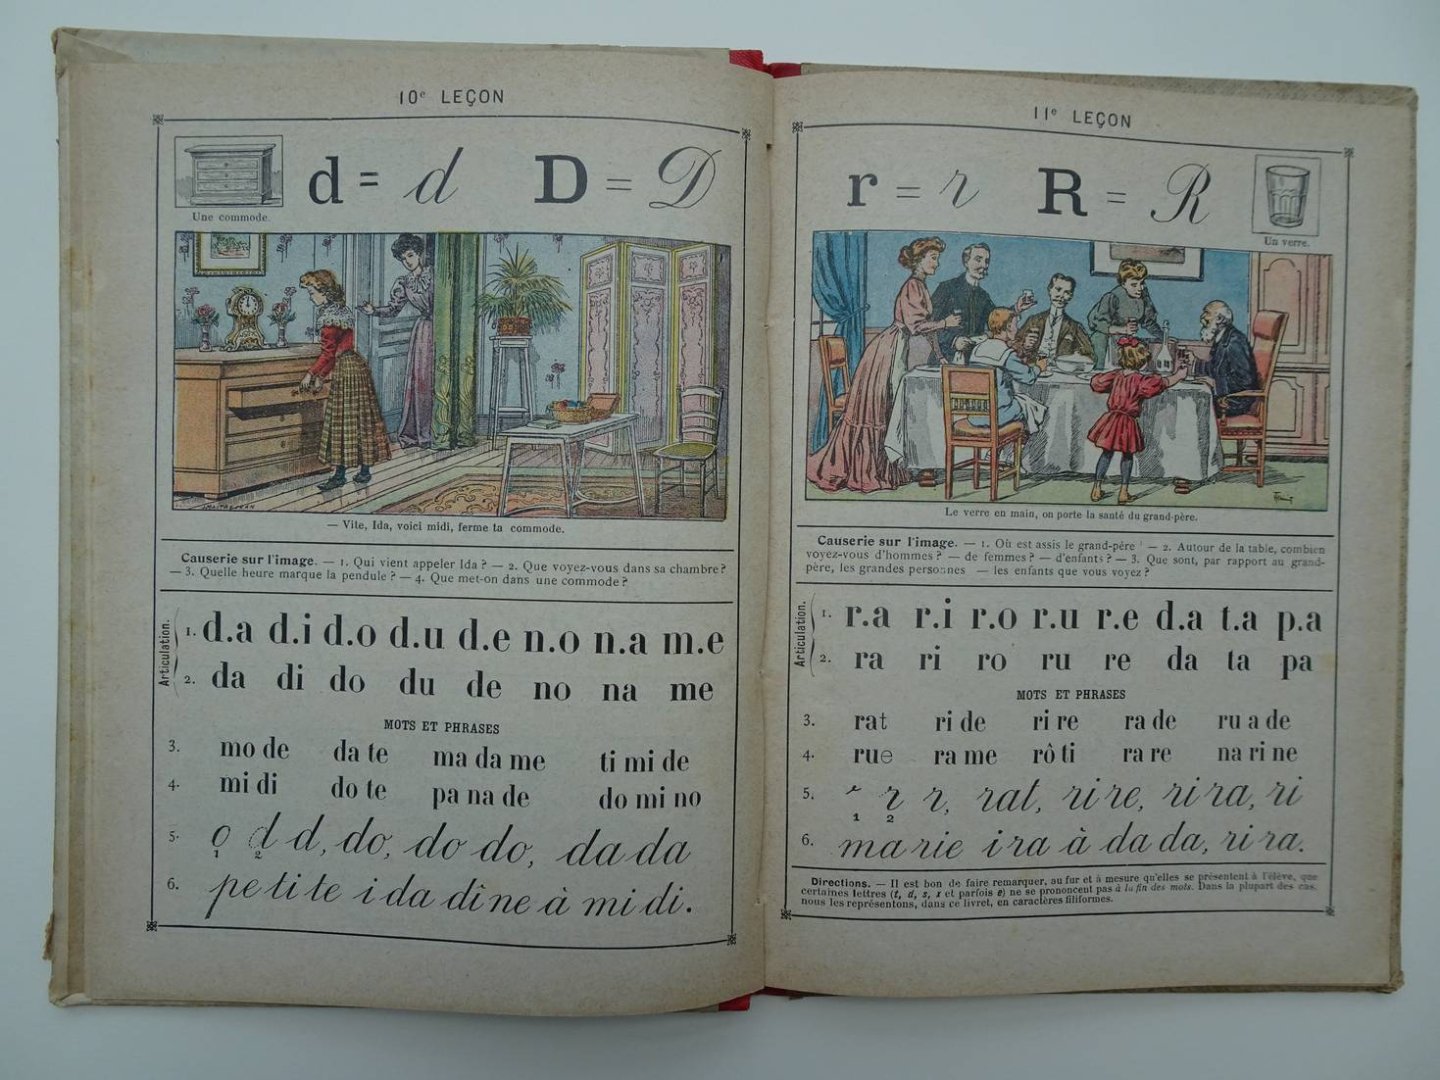 10e LEÇON
d = d D = D
Une commode.
— Vite, Ida, voici midi, ferme ta commode.
Causerie sur l'image. — 1. Qui vient appeler Ida ? — 2. Que voyez-vous dans sa chambre ?
— 3. Quelle heure marque la pendule ? — 4. Que met-on dans une commode ?
Articulation.
1. d.a d.i d.o d.u d.e n.o n.a m.e
2. da di do du de no na me
MOTS ET PHRASES
3. mo de da te ma da me ti mi de
4. mi di do te pa na de do mi no
5. o d d, do, do do, da da
1 2
6. pe ti te i da dî ne à mi di.
11e LEÇON
r = r R = R
Un verre.
Le verre en main, on porte la santé du grand-père.
Causerie sur l'image. — 1. Où est assis le grand-père — 2. Autour de la table, combien
voyez-vous d'hommes ? — de femmes ? — d'enfants ? — 3. Que sont, par rapport au grand-
père, les grandes personnes — les enfants que vous voyez ?
Articulation.
1. r.a r.i r.o r.u r.e d.a t.a p.a
2. ra ri ro ru re da ta pa
MOTS ET PHRASES
3. rat ri de ri re ra de ru a de
4. rue ra me rô ti ra re na ri ne
5. r r, rat, ri re, ri ra, ri
1 2
6. ma rie i ra à da da, ri ra.
Directions. — Il est bon de faire remarquer, au fur et à mesure qu'elles se présentent à l'élève, que
certaines lettres (t, d, s, x et parfois e) ne se prononcent pas à la fin des mots. Dans la plupart des cas,
nous les représentons, dans ce livret, en caractères filiformes.